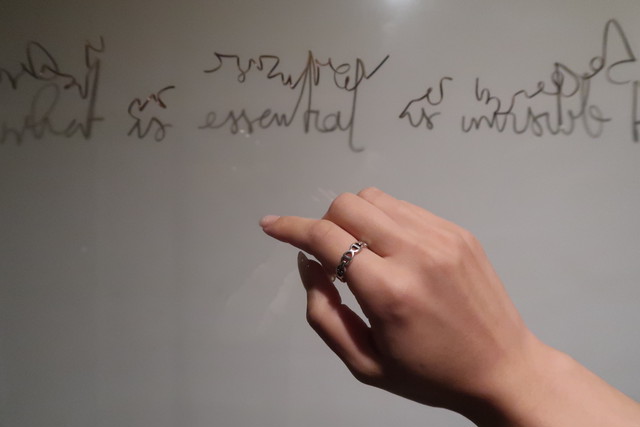 what is essential is invisible